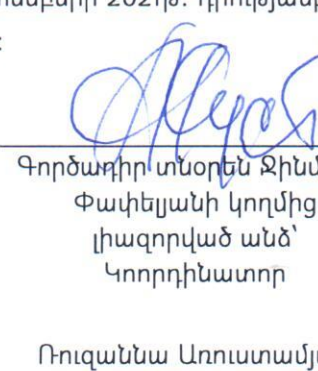 2021թ. դրությամբ
Գործադիր տնօրեն Ջինա
Փափելյանի կողմից
լիազորված անձ՝
Կոորդինատոր
Ռուզաննա Առուստամյան